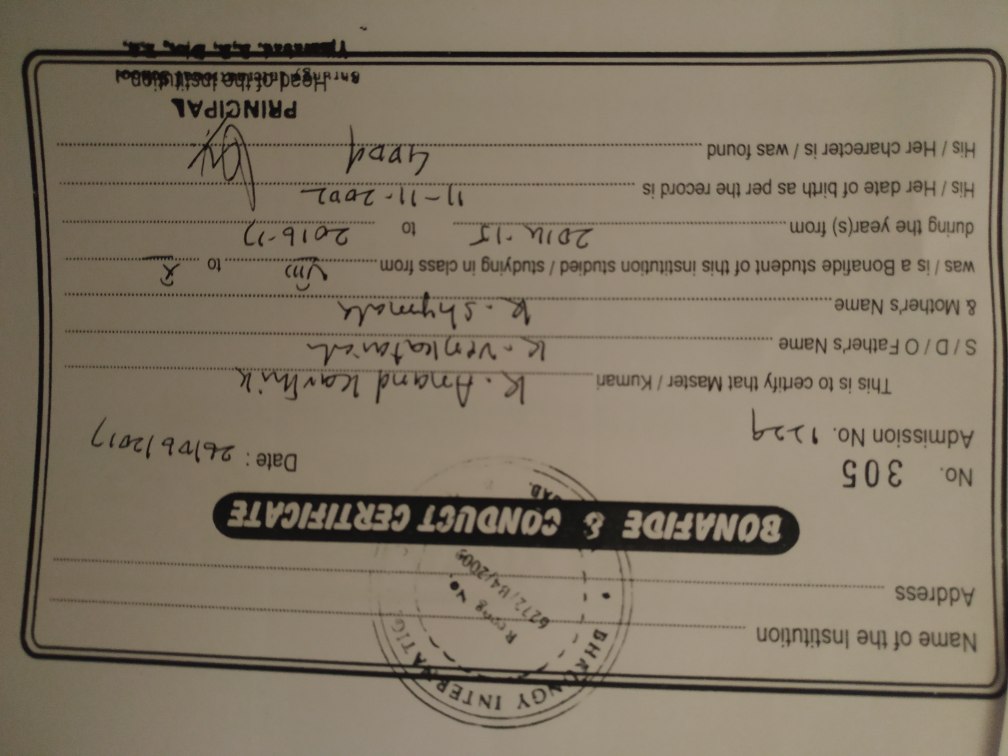 BHRUNGY INTERNATIO
Recog No.
6272/B4/2009
Name of the Institution
Address
BONAFIDE & CONDUCT CERTIFICATE
No. 305
Date : 26/06/2017
Admission No. 1229
This is to certify that Master / Kumari K. Anand Karthik
S / D / O Father's Name K. Venkataiah
& Mother's Name K. Shymala
was / is a Bonafide student of this institution studied / studying in class from VIII to X
during the year(s) from 2014-15 to 2016-17
His / Her date of birth as per the record is 11-11-2002
His / Her charecter is / was found Good
PRINCIPAL
Head of the Institution
Bhrungy International School